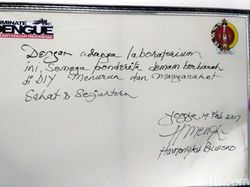 ELIMINATE
DENGUE
TANTANGAN INDONESIA
Dengan adanya laboratorium
ini, Semoga penderita demam berdarah
di DIY Menurun dan Masyarakat
Sehat & Sejahtera
Yogya, 4 Feb 2017
Hamengku Buwono